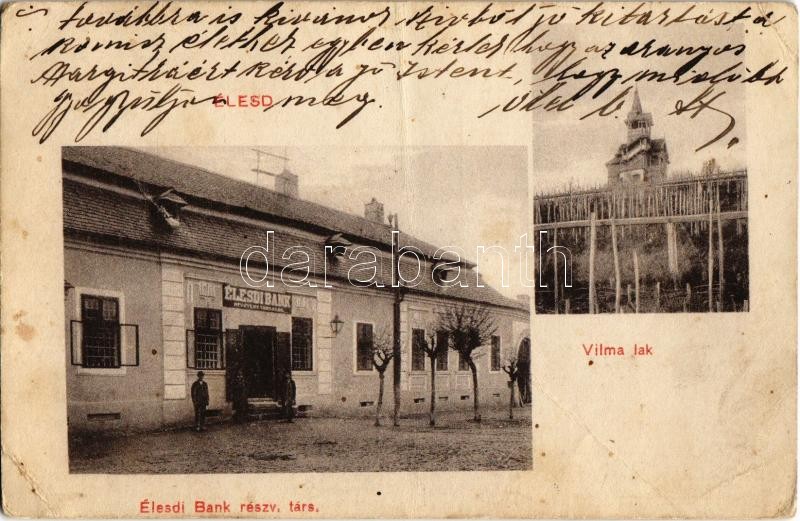 továbbra is kivánok szivből jó kitartást a
komisz élethez egyben kérlek hogy az aranyos
Margitkáért kérd a jó Istent, hogy mielőbb
gyógyuljon meg.
ÉLESD
darabanth
ÉLESDI BANK
RÉSZVÉNYTÁRSASÁG
Vilma lak
Élesdi Bank részv. társ.